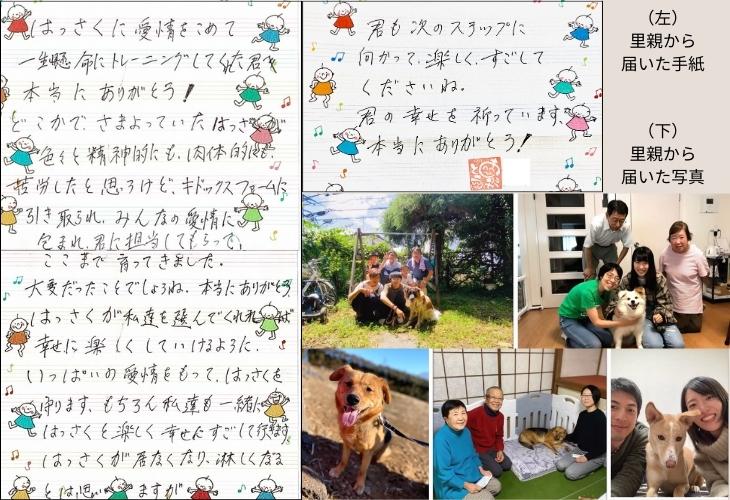 はっさくに愛情をこめて
一生懸命にトレーニングしてくれた君へ
本当にありがとう!
どこかで、さまよっていたはっさくが
色々と精神的にも、肉体的にも、
苦労したと思うけど、キドックスファームに
引き取られ、みんなの愛情に
包まれ、君に担当してもらって、
ここまで育ってきました。
大変だったことでしょうね。本当にありがとう
はっさくが私達を選んでくれれば
幸せに楽しくしていけるように。
いっぱいの愛情をもって、はっさくを
守ります。もちろん私達も一緒に
はっさくと楽しく幸せにすごして行きます
はっさくが居なくなり、淋しくなる
とは思いますが
君も次のステップに
向かって、楽しく、すごして
くださいね。
君の幸せを祈っています。
本当にありがとう!
(左)
里親から
届いた手紙
(下)
里親から
届いた写真